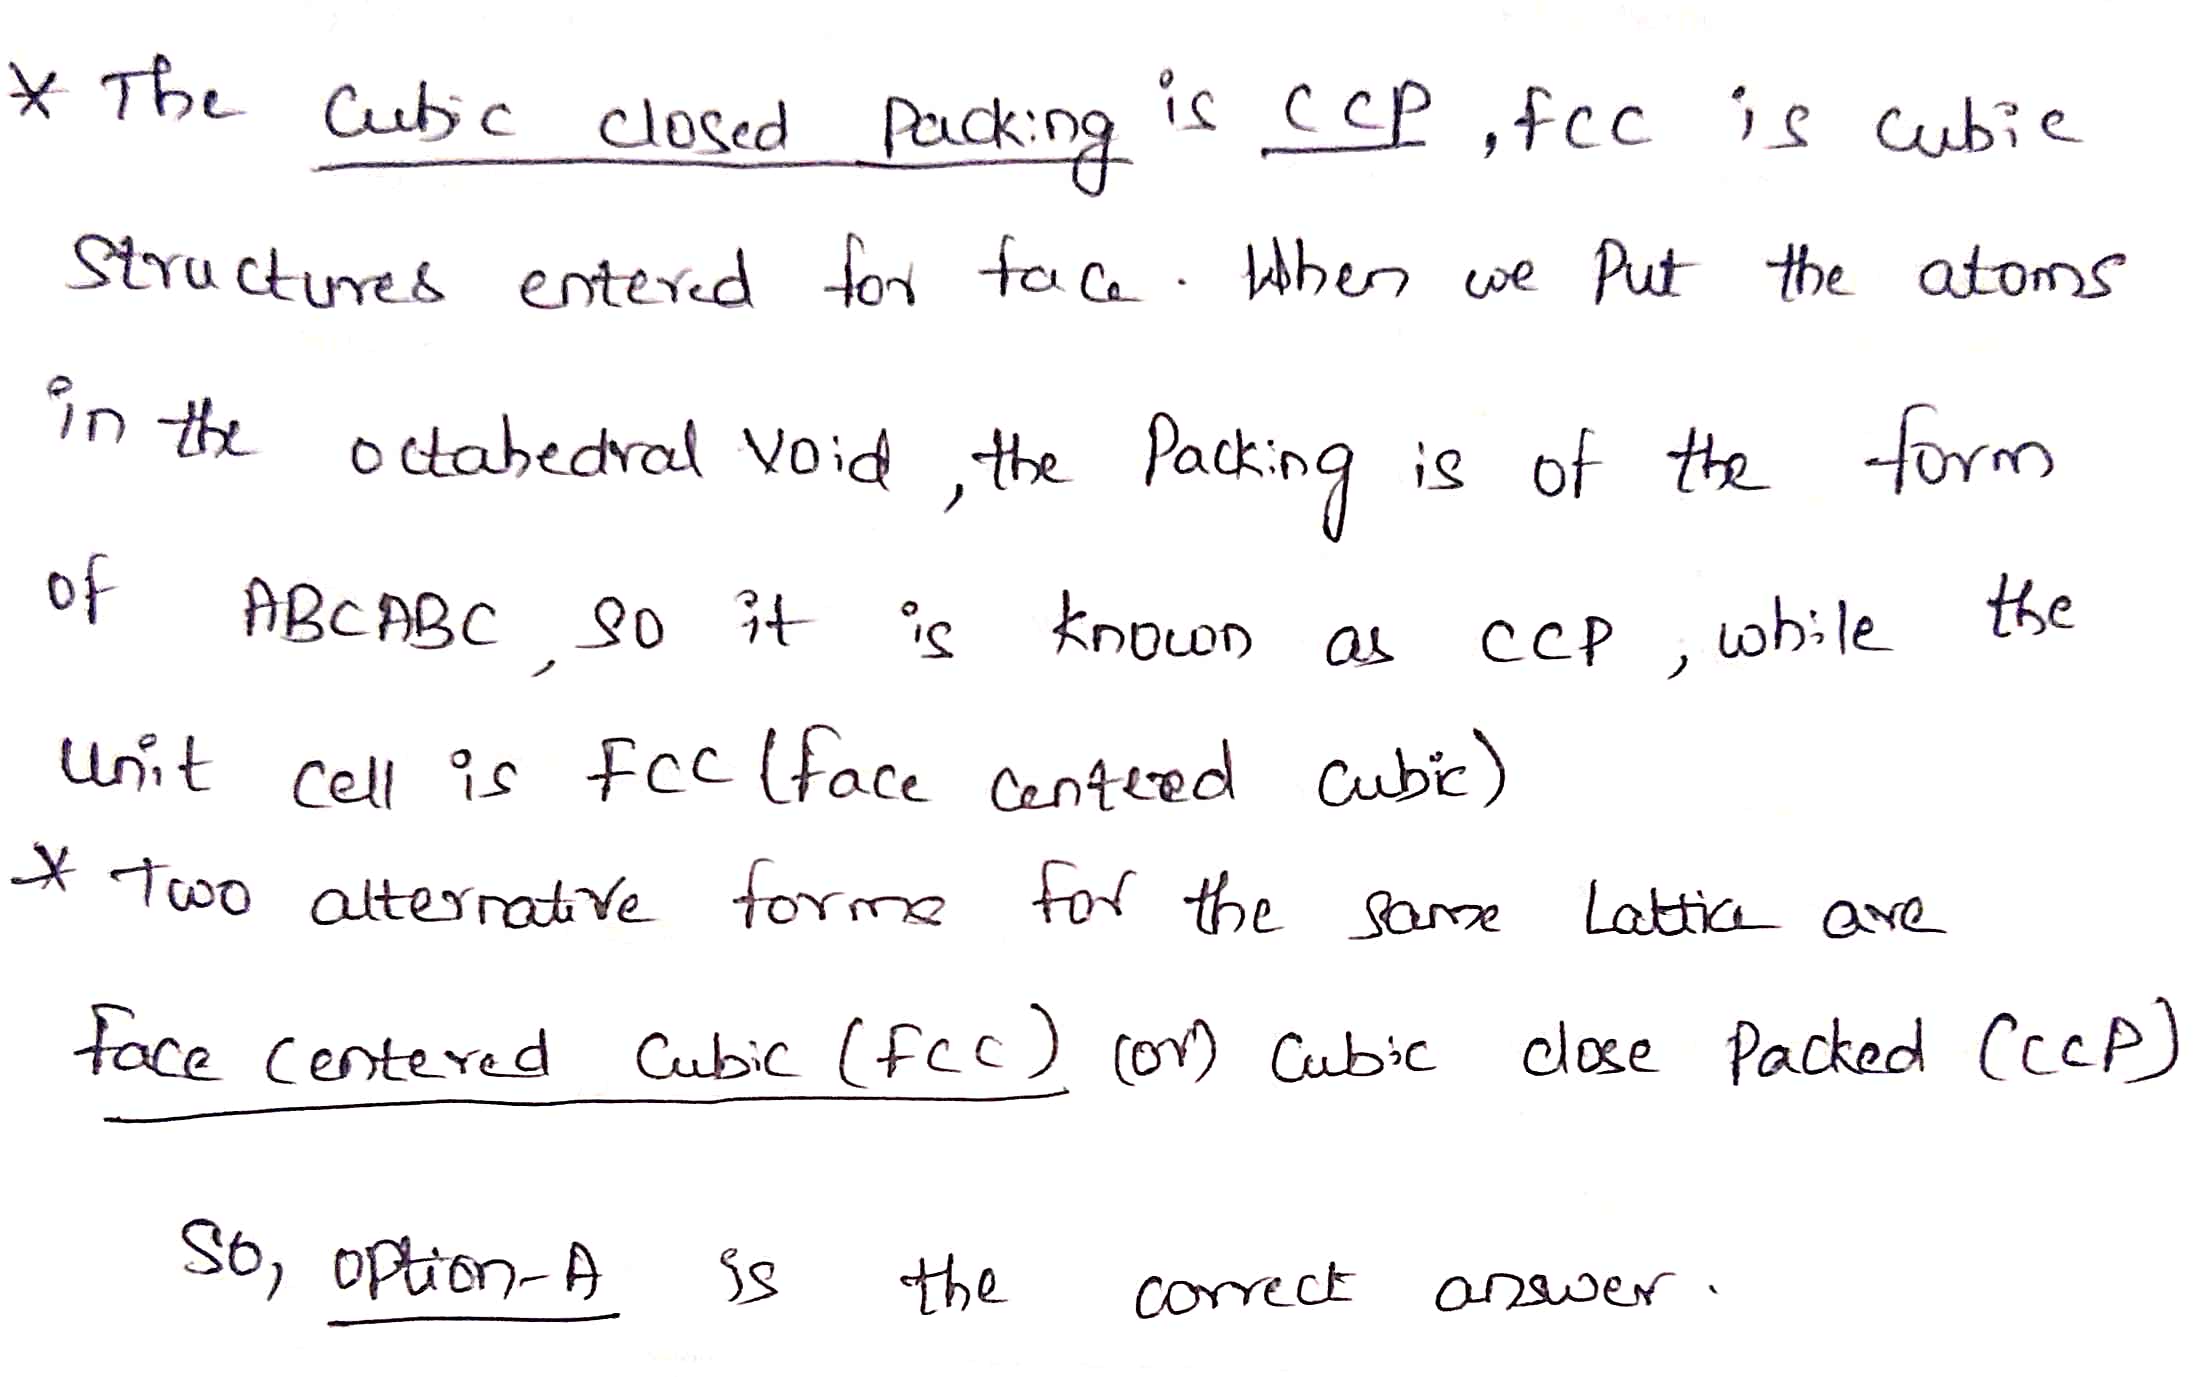 * The Cubic closed Packing is CCP, fcc is cubic
Structures entered for face. When we Put the atoms
in the octahedral void, the Packing is of the form
of ABCABC, so it is known as CCP, while the
Unit cell is FCC (face centered cubic)
* Two alternative forms for the same Lattice are
Face Centered Cubic (FCC) (or) Cubic close Packed (CCP)
So, option-A is the correct answer.